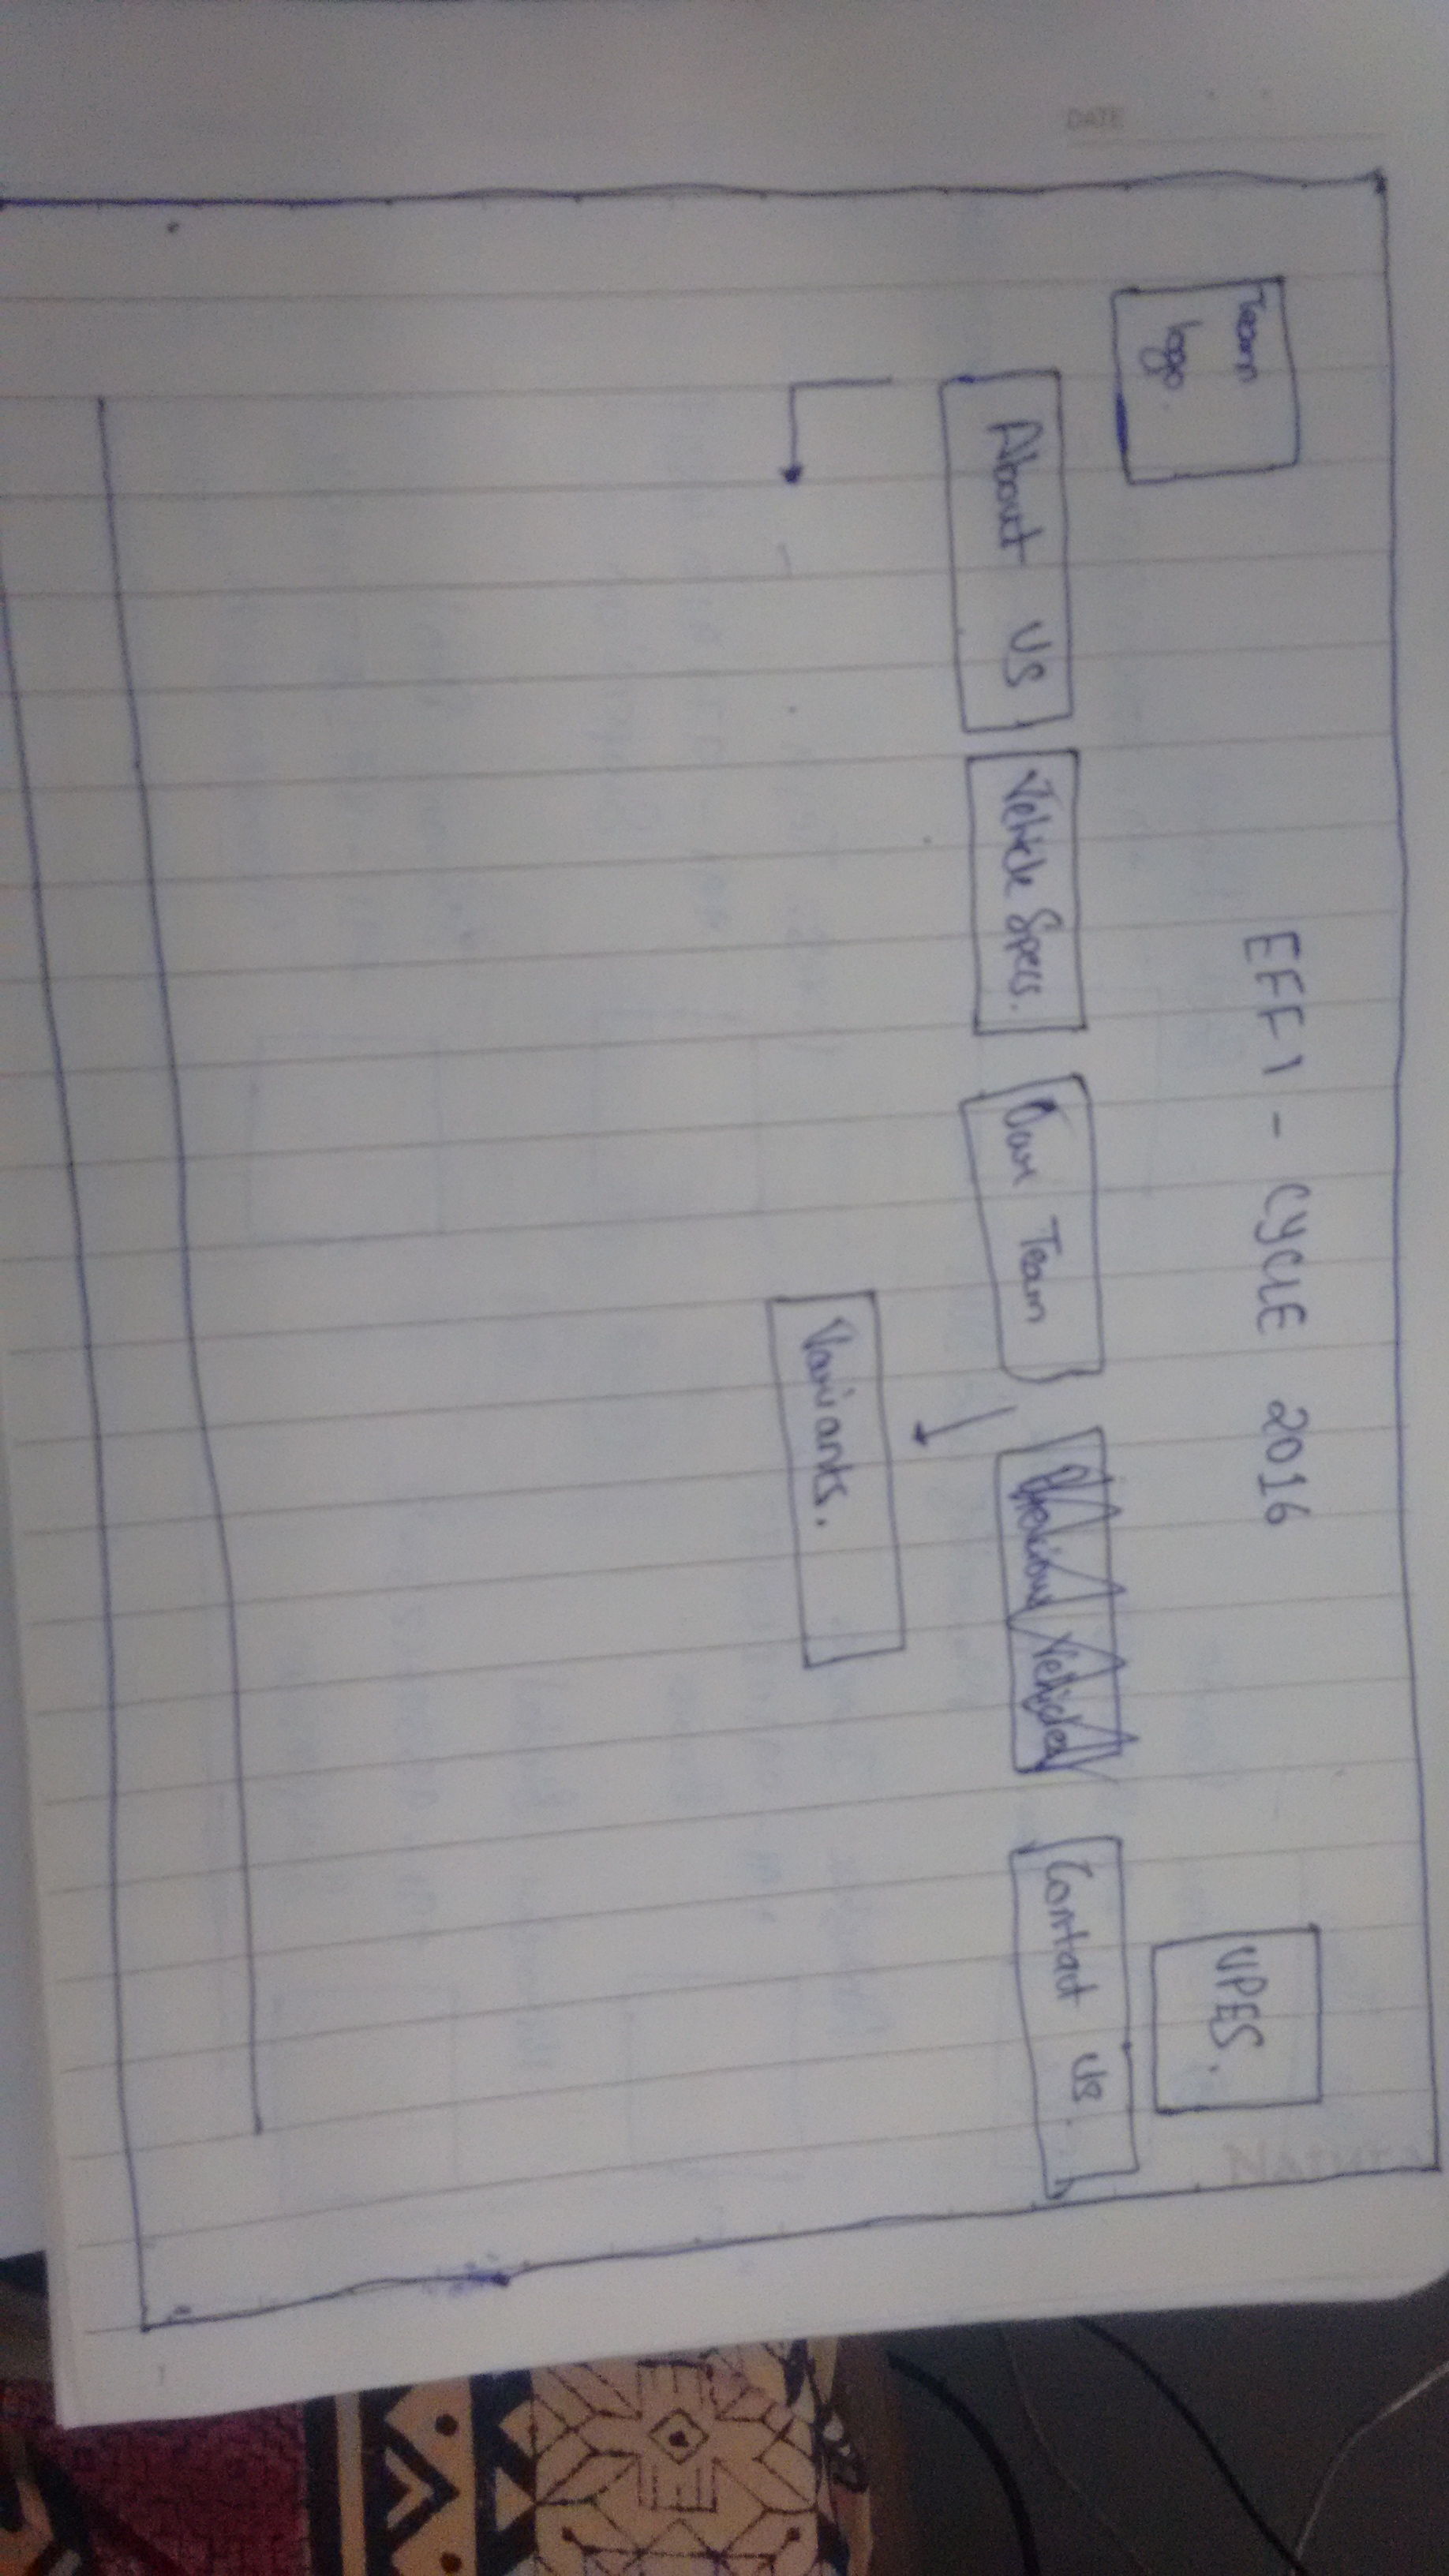 DATE
Team
logo.
EFFI - CYCLE 2016
UPES.
About us
Vehicle Specs.
Our Team
Previous Vehicles
Contact us.
Variants.